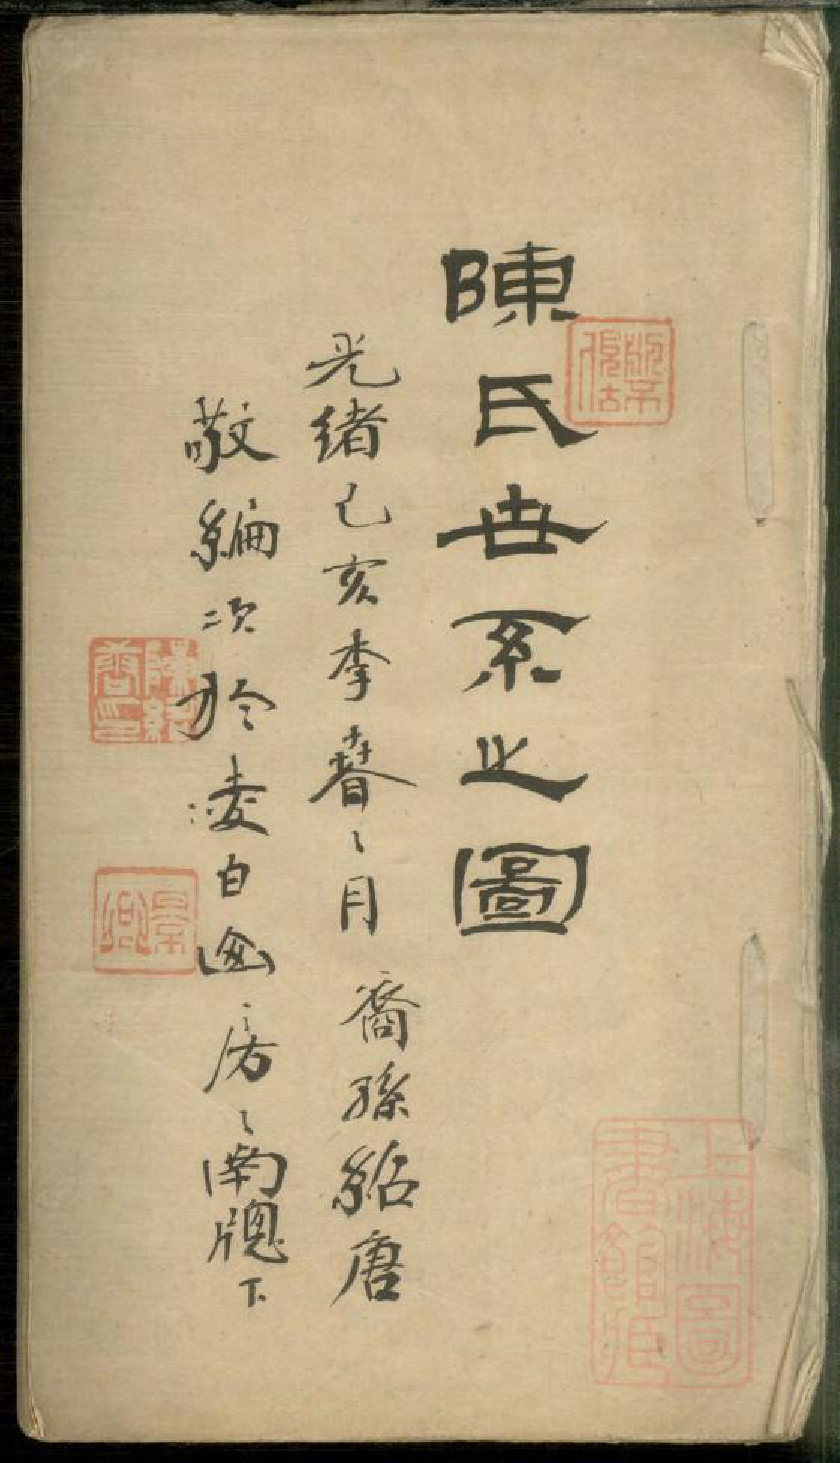 陳氏世系之圖
光緒己亥季春之月 裔孫紹唐
敬編次於凌白山房之南牕下
上海圖書館藏
景卿
陳紹唐印